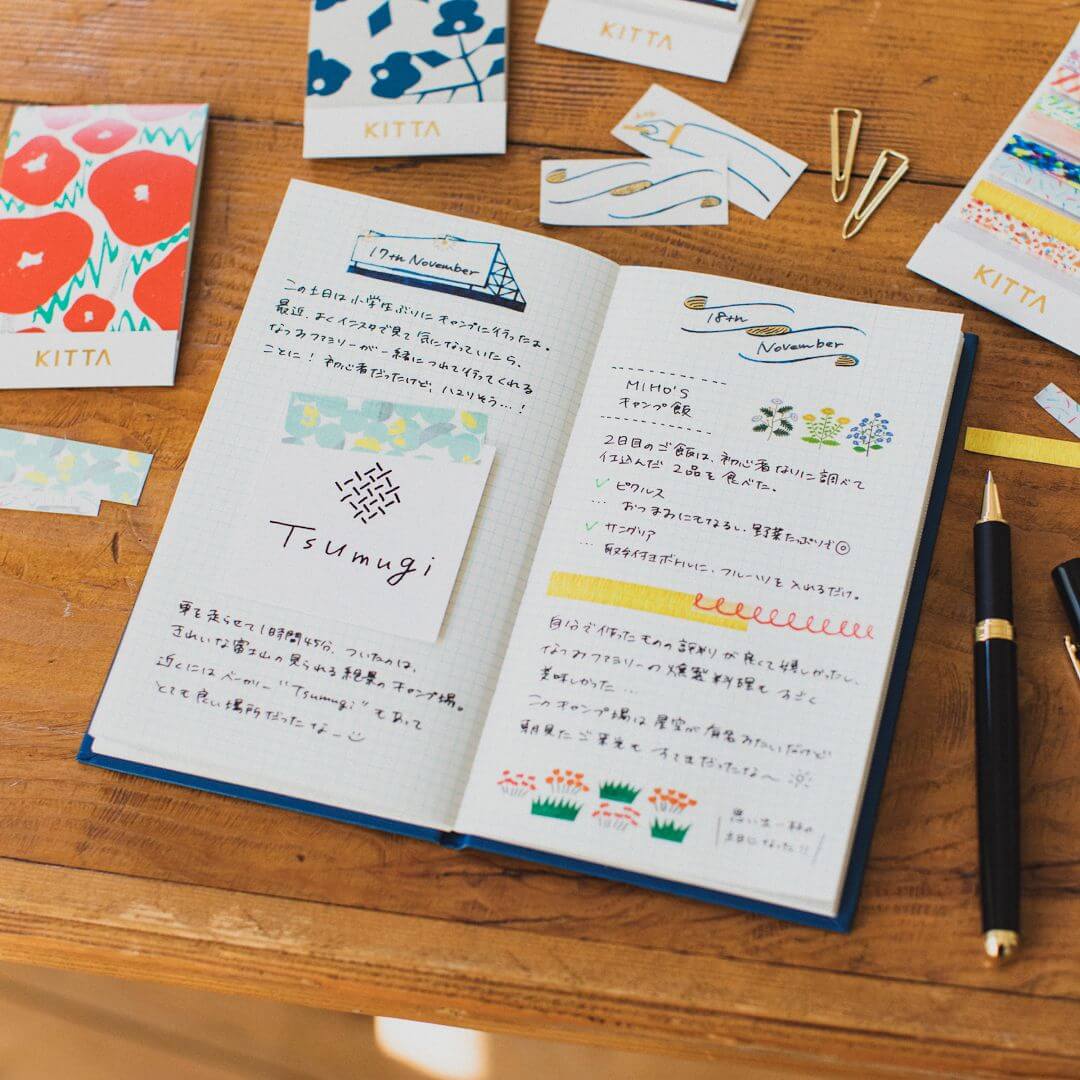 KITTA
KITTA
KITTA
KITTA
17th November
この土日は小学生ぶりにキャンプに行ったよ。
最近、よくインスタで見て気になっていたら、
なつみファミリーが一緒につれて行ってくれる
ことに！初心者だったけど、ハマりそう…！
Tsumugi
車を走らせて1時間45分、ついたのは、
きれいな富士山の見られる絶景のキャンプ場。
近くにはベーカリー"Tsumugi"もあって
とても良い場所だったなー
18th
November
MIHO'S
キャンプ飯
2日目のご飯は、初心者なりに調べて
仕込んだ2品を食べた。
✓ ピクルス
… おつまみにもなるし、野菜たっぷりで◎
✓ サングリア
… 取手付きボトルに、フルーツを入れるだけ。
自分で作ったものの評判が良くて嬉しかったし、
なつみファミリーの燻製料理もすごく
美味しかった…
このキャンプ場は星空が有名みたいだけど
朝見たご来光もすてきだったな〜
思い出一杯の
土日になった!!